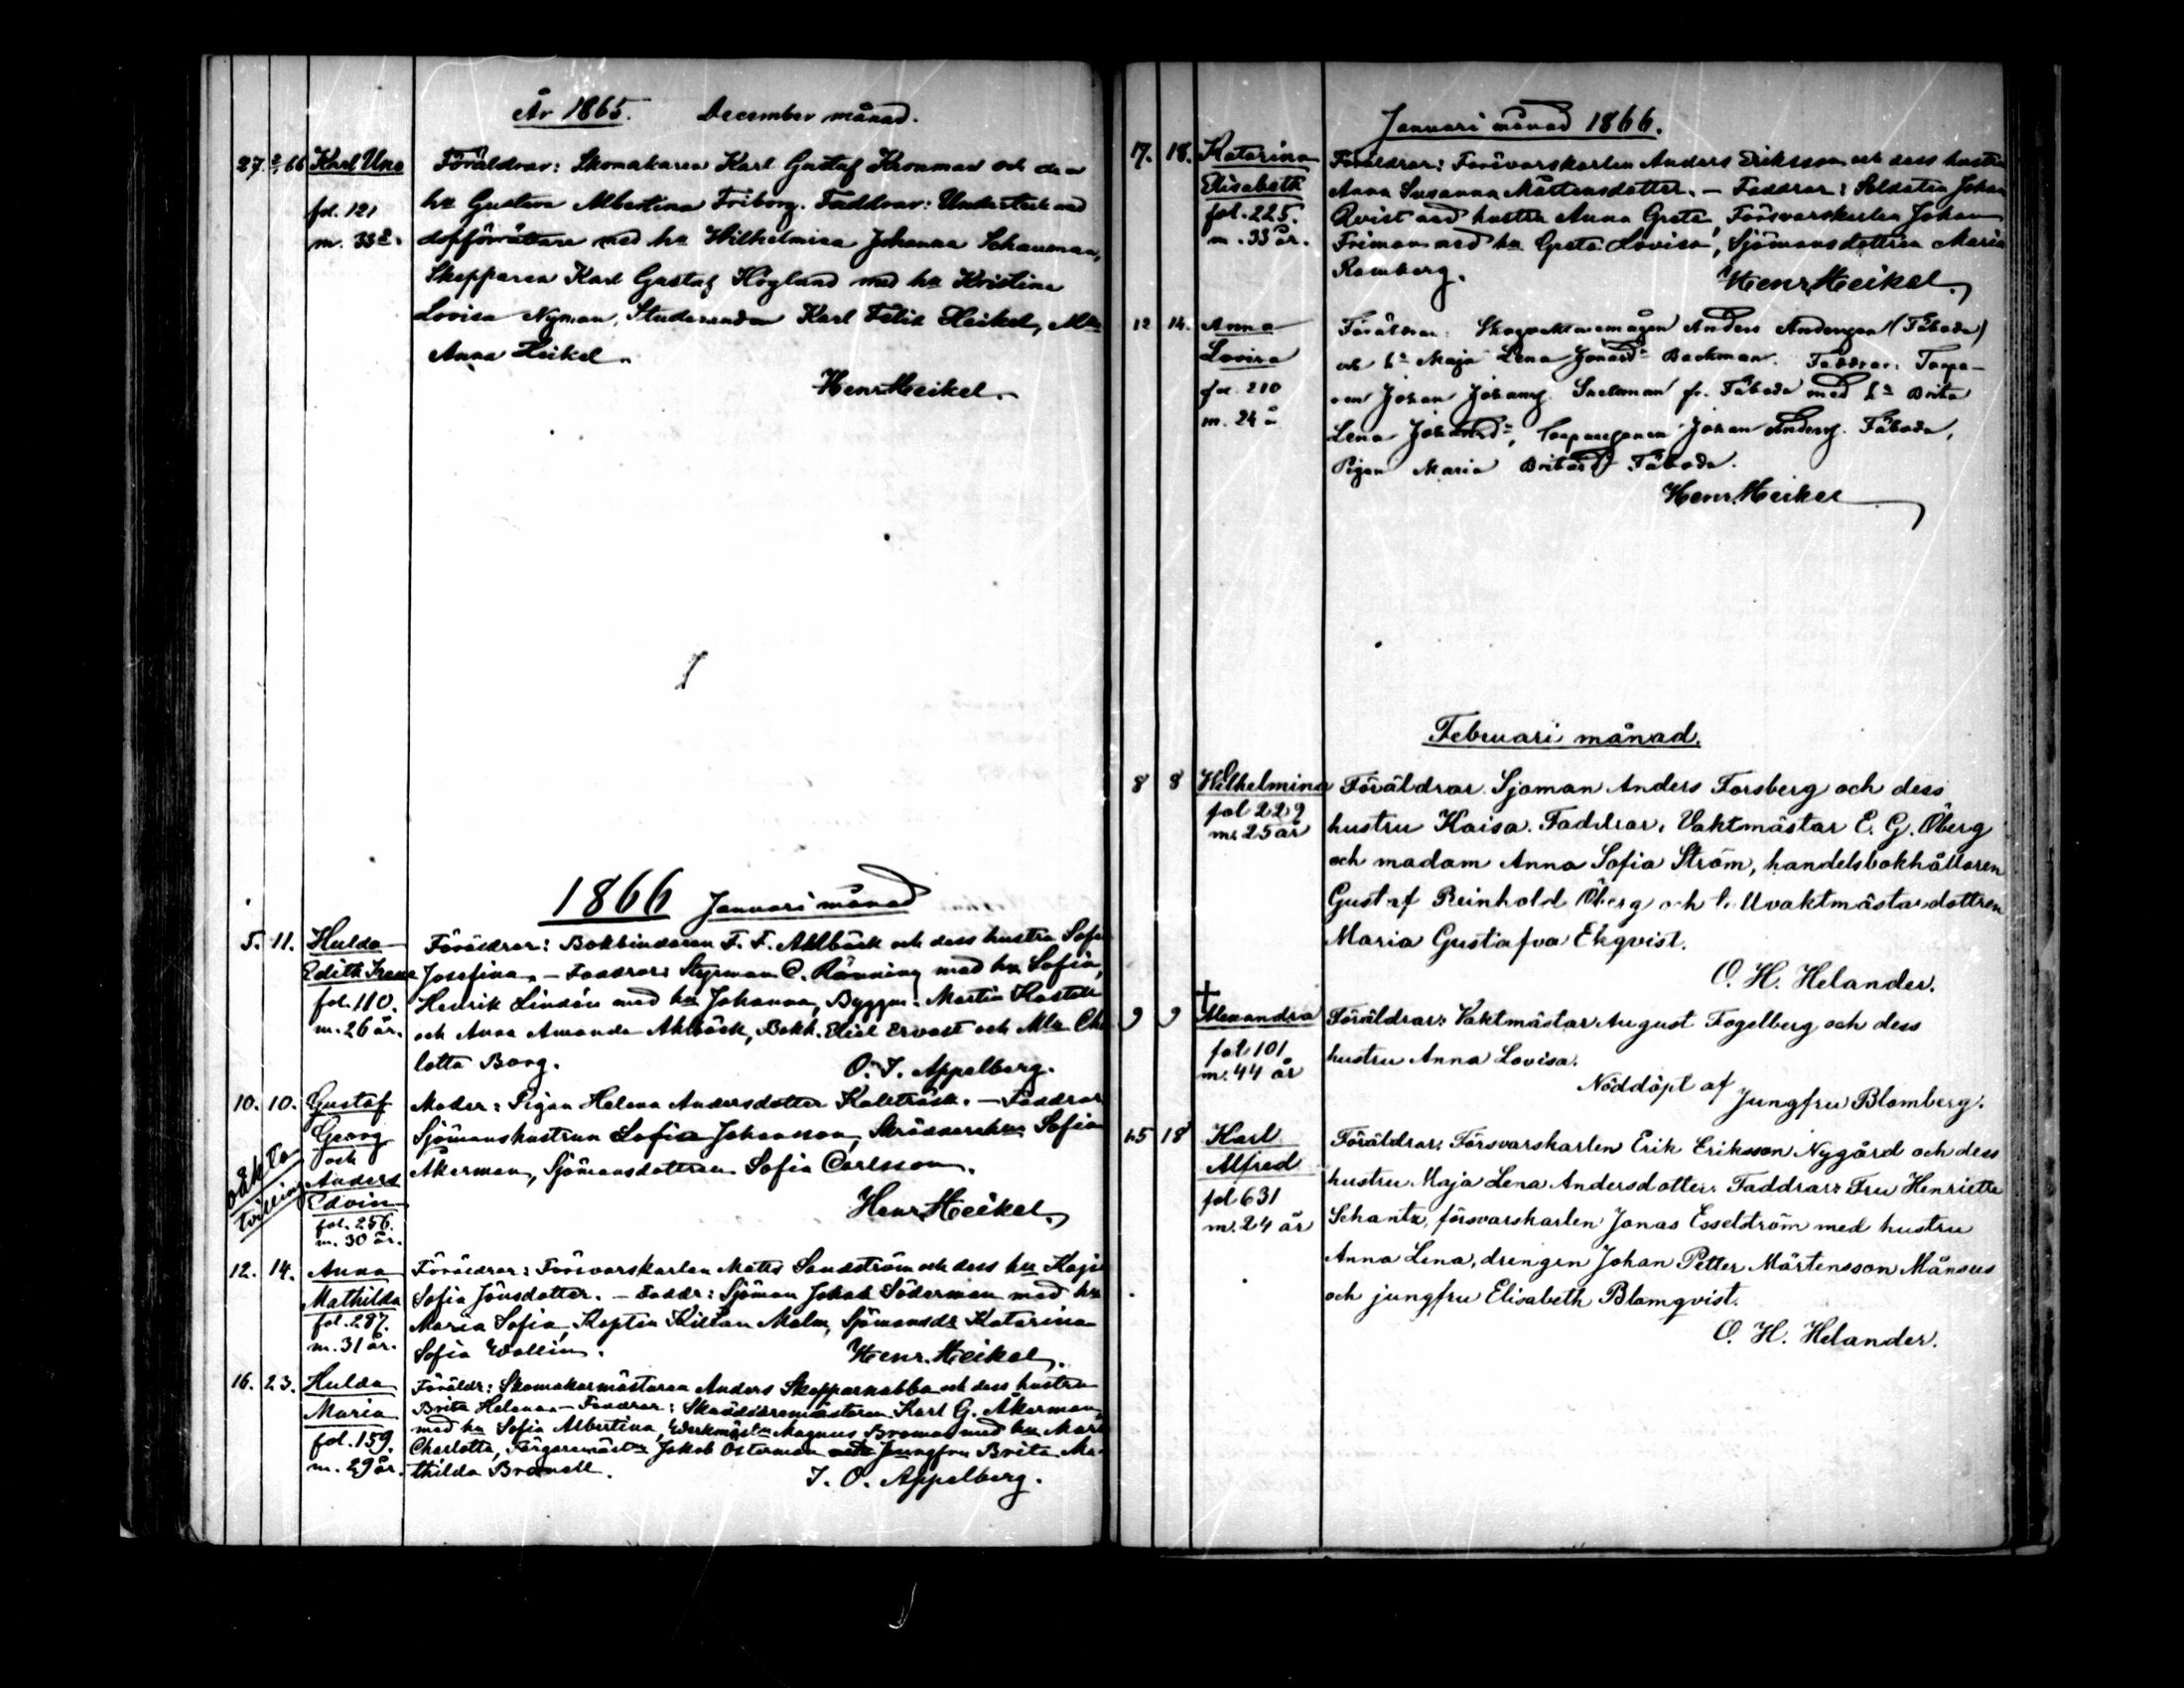 År 1865. December månad.
27. 2/1 66 Karl Uno Föräldrar: Skomakaren Karl Gustaf Kronman och dess
fol. 121 hu Gustava Albertina Friborg. Faddrar: Undertecknad
m. 33 å. dopförrättare med hu Wilhelmina Johanna Schauman,
Skepparen Karl Gustaf Höglund med hu Kristina
Lovisa Nyman, Studeranden Karl Felix Heikel, Mll
Anna Heikel.
Henr. Heikel.
1866 Januari månad
5. 11. Hulda Föräldrar: Bokbindaren F. F. Ahlbäck och dess hustru Sofi
Edith Irene Josefina. – Faddrar: Styrman C. Rönning med hu Sofia,
fol. 110. Henrik Lindén med hu Johanna, Byggm. Martin Kastell
m. 26 år. och Anna Amanda Ahlbäck, Bokh. Eliel Ervast och Mll. Ch
lotta Borg.
O. I. Appelberg.
10. 10. Gustaf Moder: Pigan Helena Andersdotter Kalträsk. – Faddrar
Georg Sjömanshustrun Sofia Johansson, Skräddarehu Sofia
och Åkerman, Sjömansdottren Sofia Carlsson.
oäkta tvilling
Anders
Edvin
fol. 256.
m. 30 år.
Henr. Heikel.
12. 14. Anna Föräldrar: Försvarskarlen Matts Sandström och dess hu Kajs
Mathilda Sofia Jönsdotter. – Faddr: Sjöman Jakob Söderman med hu
fol. 287. Maria Sofia, Kapten Kilian Malm, Sjömansdr Katarina
m. 31 år. Sofia Wallin.
Henr. Heikel.
16. 23. Hulda Föräldr: Skomakarmästaren Anders Skepparnabba och dess hustru
Maria Brita Helena. – Faddrar: Skräddaremästaren Karl G. Åkerman,
med hu Sofia Albertina, Werkmäst. Magnus Broman med hu Mari
fol. 159. Charlotta, Färgaremäst. Jakob Österman Jungfru Brita Ma-
m. 29 år. thilda Brandt.
I. O. Appelberg.
Januari månad 1866.
17. 18. Katarina Föräldrar: Försvarskarlen Anders Eriksson och dess hustru
Elisabeth Anna Susanna Mårtensdotter. – Faddrar: Soldaten Johan
fol. 225. Qvist med hustru Anna Greta, Försvarskarlen Johan
m. 33 år. Friman med hu Greta Lovisa, Sjömansdottren Maria
Romberg.
Henr. Heikel.
12 14. Anna Föräldrar: Anders Andersson (Fäboda)
Lovisa och hu Maja Lena Backman. Faddrar: Torpa-
fol. 210 ren Johan fr. Fäboda med hu Brita
m. 24 å Lena Johansdr, Johan Anderss. Fäboda,
Pigan Maria Fäboda.
Henr. Heikel
Februari månad.
8 8 Wilhelmina Föräldrar. Sjöman Anders Forsberg och dess
fol 229 hustru Kaisa. Faddrar. Vaktmästar E. G. Öberg
m. 25 år och madam Anna Sofia Ström, handelsbokhållaren
Gustaf Reinhold Öberg och Uvaktmästardottren
Maria Gustafva Ekqvist.
O. H. Helander.
9 9 † Alexandra Föräldrar: Vaktmästar August Fogelberg och dess
fol 101 hustru Anna Lovisa.
m. 44 år
Nöddöpt af
Jungfru Blomberg.
15 18 Karl Föräldrar. Försvarskarlen Erik Eriksson Nygård och dess
Alfred hustru Maja Lena Andersdotter. Faddrar: Fru Henriette
fol 631 Schantz, försvarskarlen Jonas Esselström med hustru
m. 24 år Anna Lena, drengen Johan Petter Mårtensson Månsus
och jungfru Elisabeth Blomqvist.
O. H. Helander.